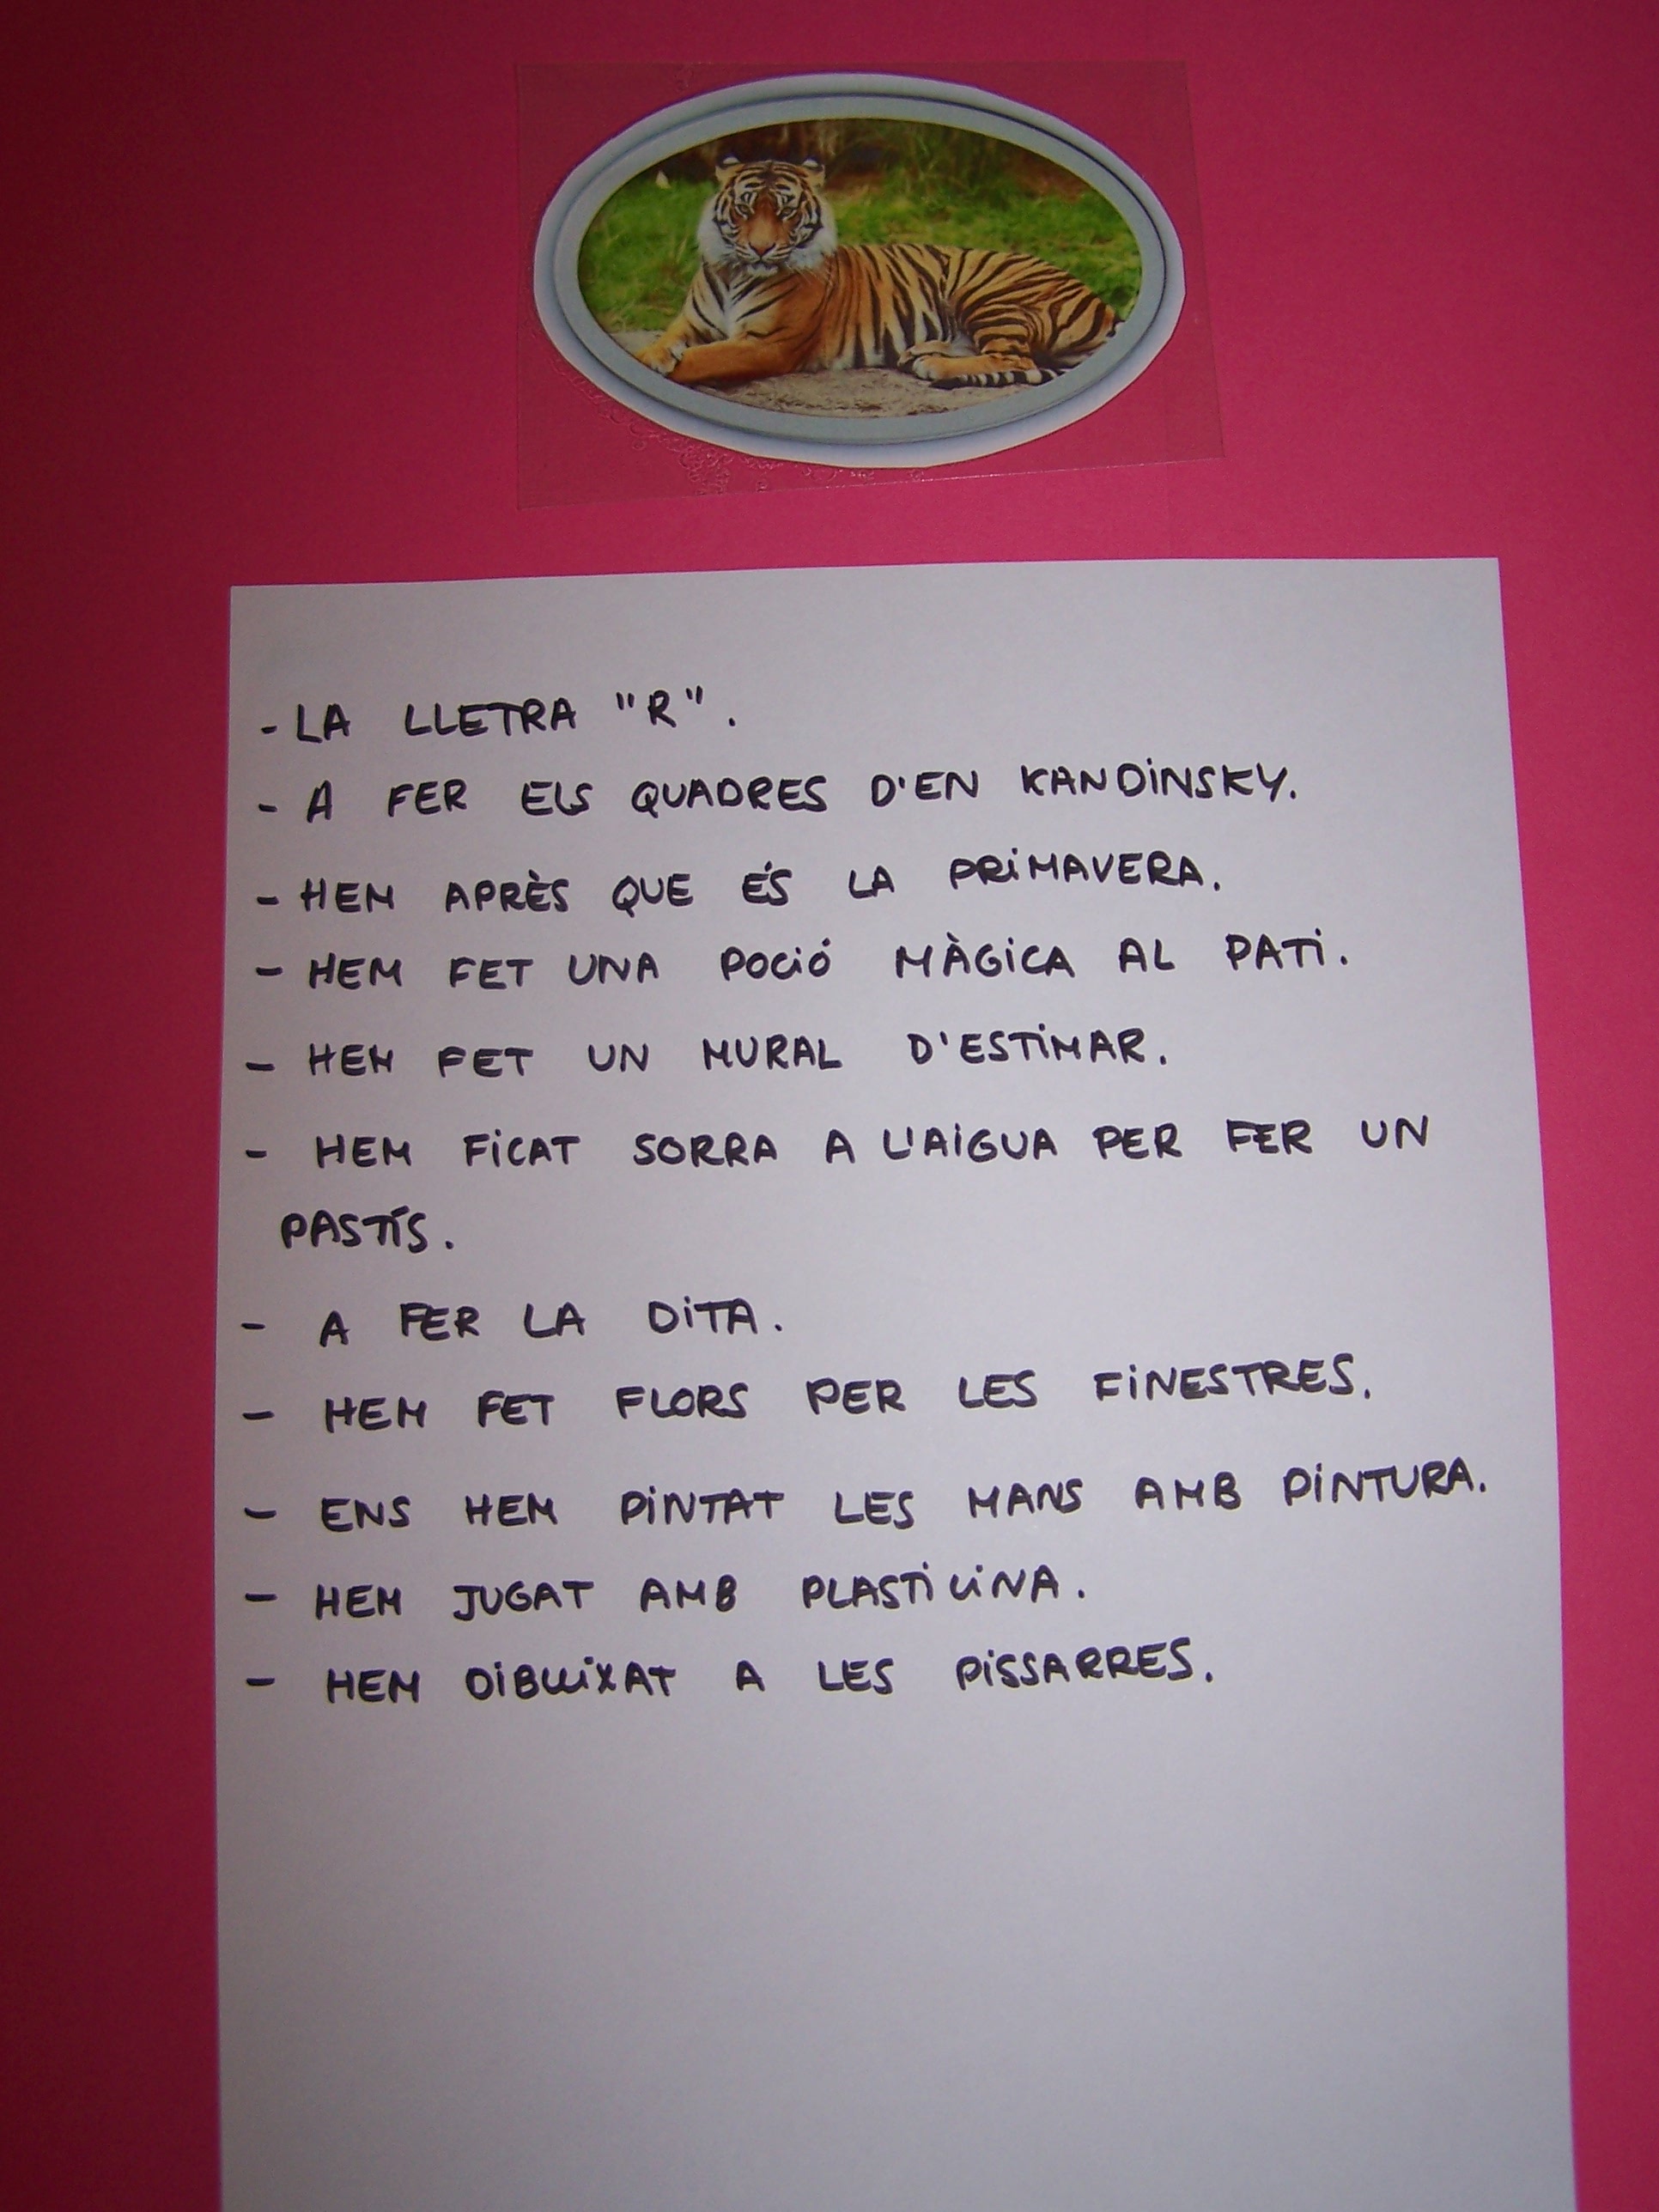 - LA LLETRA "R".
- A FER ELS QUADRES D'EN KANDiNSKY.
- HEM APRÈS QUE ÉS LA PRiMAVERA.
- HEM FET UNA POCiÓ MÀGiCA AL PATi.
- HEM FET UN MURAL D'ESTiMAR.
- HEM FiCAT SORRA A L'AiGUA PER FER UN
PASTÍS.
- A FER LA DiTA.
- HEM FET FLORS PER LES FiNESTRES.
- ENS HEM PiNTAT LES MANS AMB PiNTURA.
- HEM JUGAT AMB PLASTiLiNA.
- HEM DiBUiXAT A LES PiSSARRES.